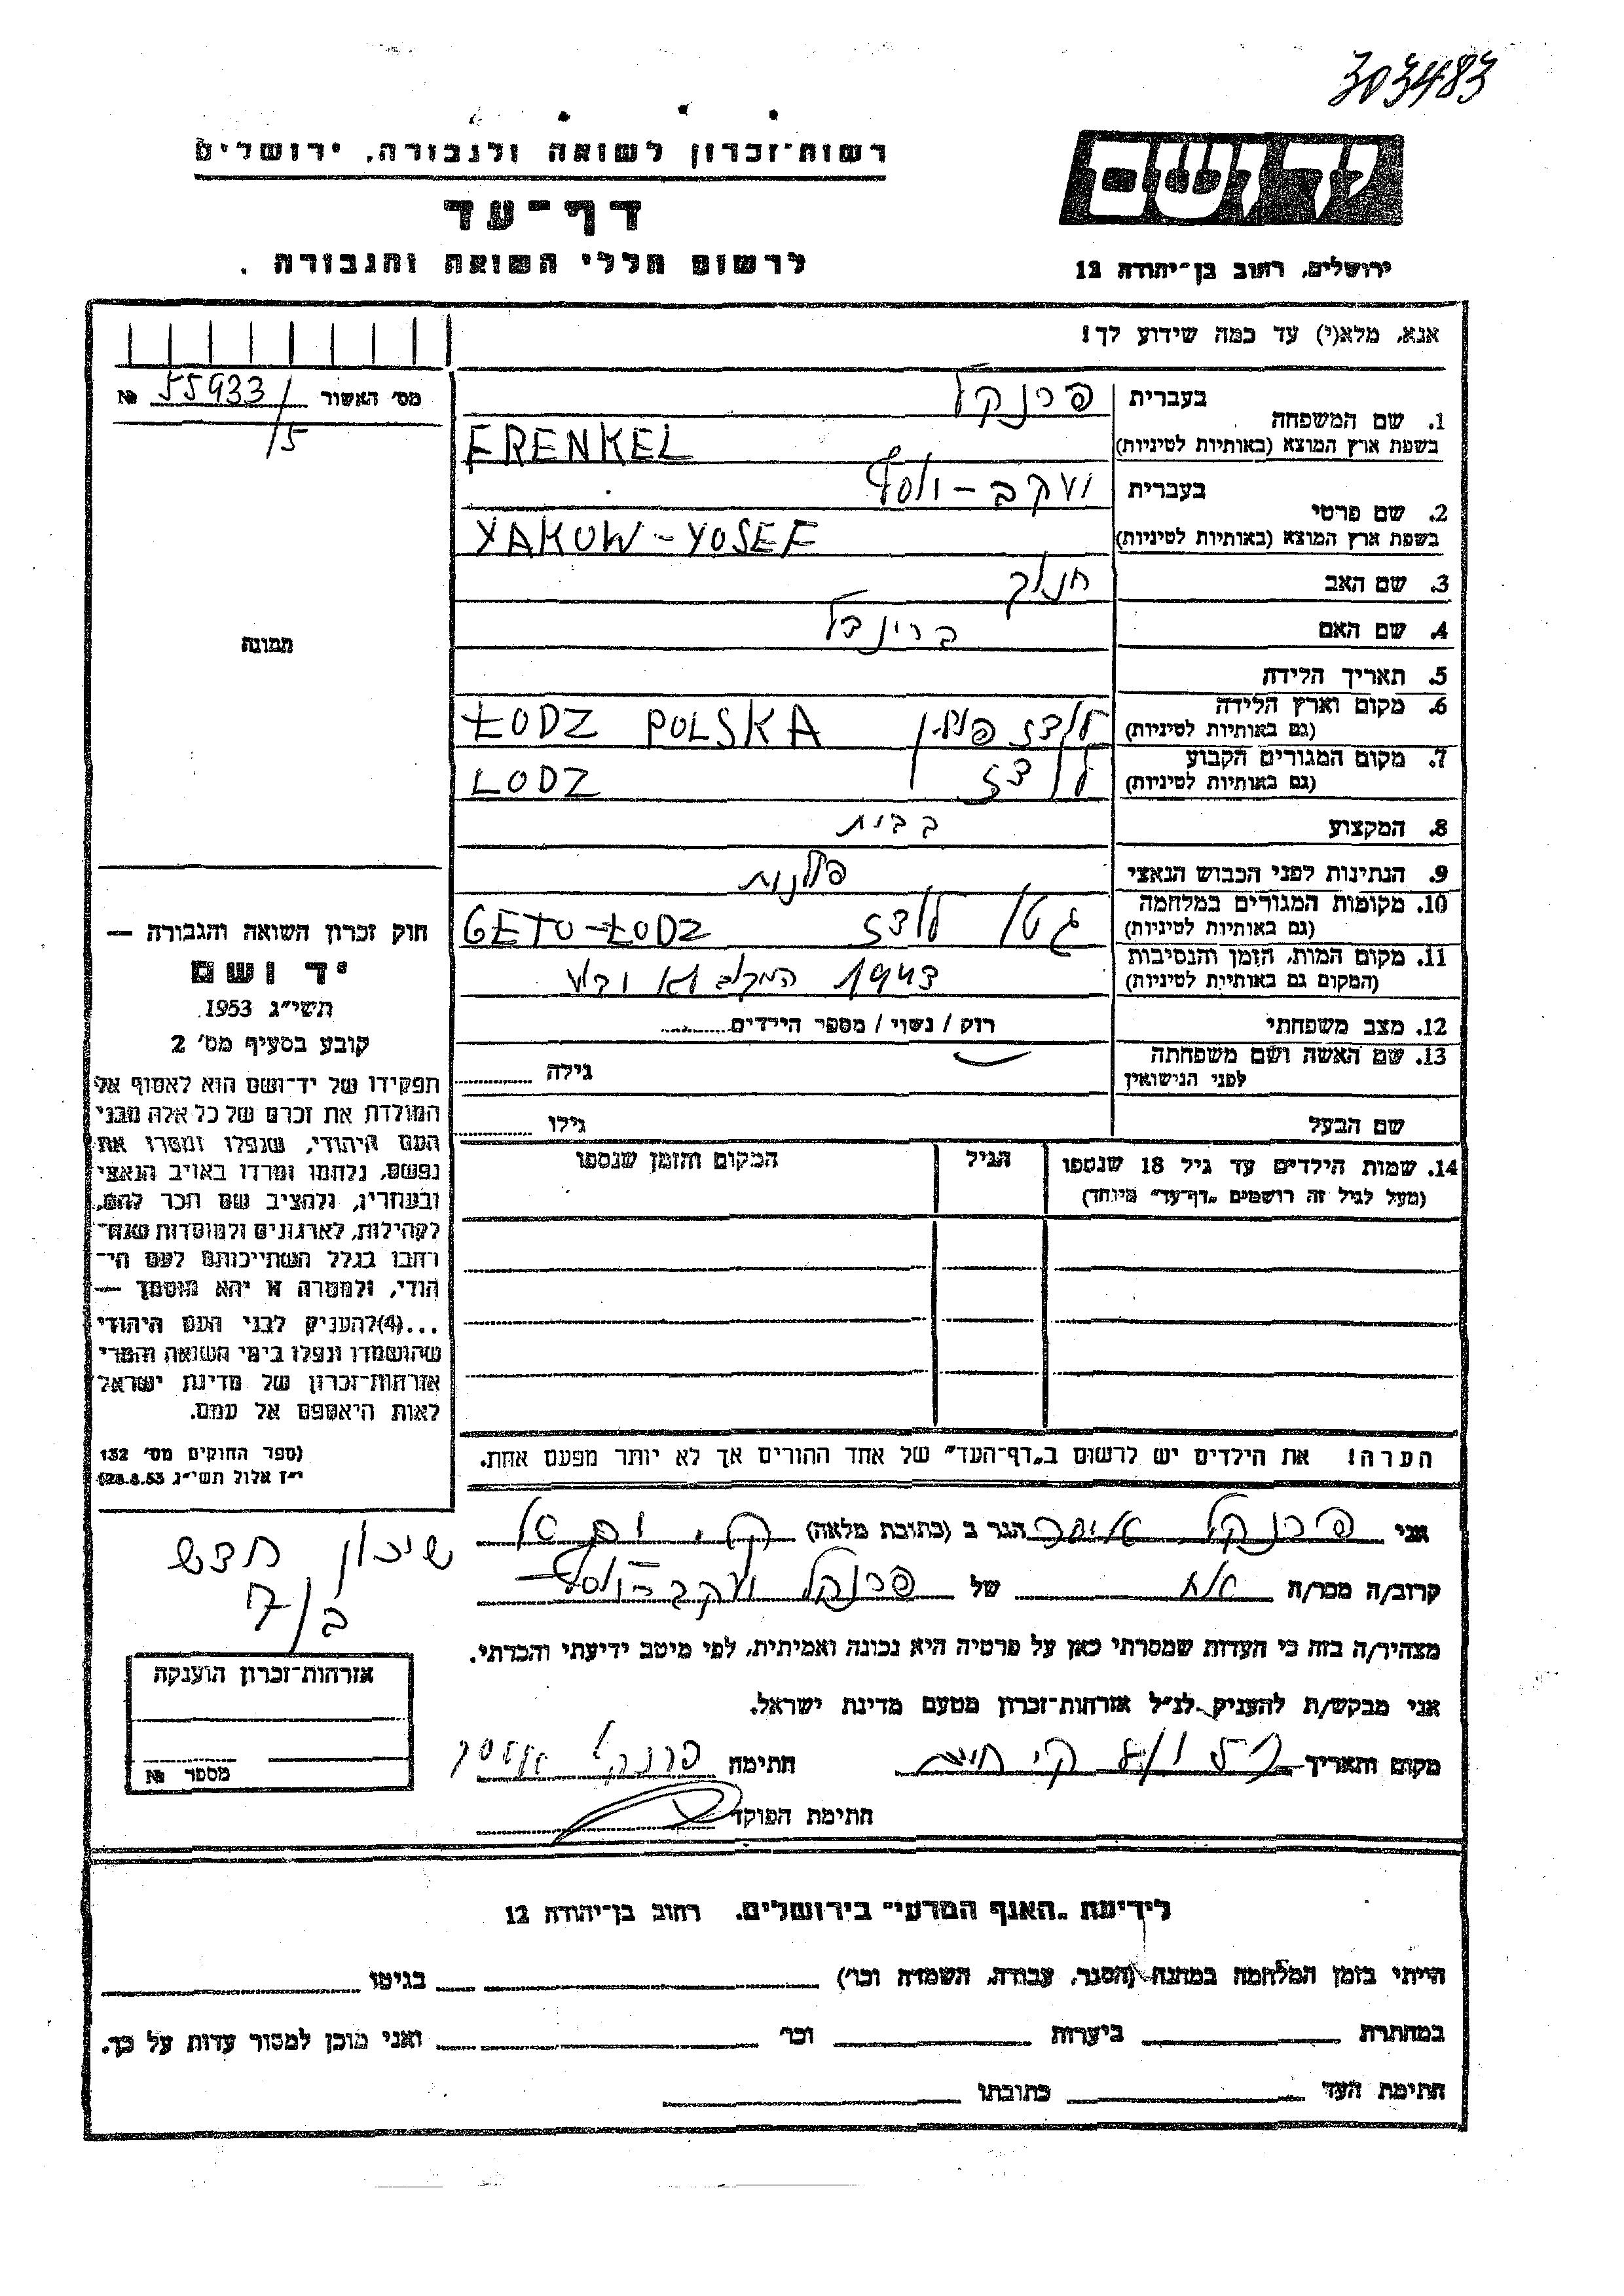 303483
רשות־זכרון לשואה ולגבורה, ירושלים
דף־עד
לרשום חללי השואה והגבורה .
יד ושם
ירושלים, רחוב בן־יהודה 12
אנא, מלא(י) עד כמה שידוע לך!
מס' האשור 55933/5 №
תמונה
1. שם המשפחה
בעברית פרנקל
בשפת ארץ המוצא (באותיות לטיניות) FRENKEL
2. שם פרטי
בעברית יעקב - יוסף
בשפת ארץ המוצא (באותיות לטיניות) YAKUW - YOSEF
3. שם האב חנוך
4. שם האם ברינדל
5. תאריך הלידה
6. מקום וארץ הלידה (גם באותיות לטיניות) לודז פולין ŁODZ POLSKA
7. מקום המגורים הקבוע (גם באותיות לטיניות) לודז LODZ
8. המקצוע
9. הנתינות לפני הכבוש הנאצי פולנית
10. מקומות המגורים במלחמה (גם באותיות לטיניות) גטו לודז GETO-ŁODZ
11. מקום המות, הזמן והנסיבות (המקום גם באותיות לטיניות) 1943 המקום לא ידוע
12. מצב משפחתי רוק / נשוי / מספר הילדים
13. שם האשה ושם משפחתה לפני הנישואין גילה
שם הבעל גילו
14. שמות הילדים עד גיל 18 שנספו
(מעל לגיל זה רושמים „דף־עד" מיוחד)
הגיל
המקום והזמן שנספו
חוק זכרון השואה והגבורה —
יד ושם
תשי"ג 1953
קובע בסעיף מס' 2
תפקידו של יד־ושם הוא לאסוף אל
המולדת את זכרם של כל אלה מבני
העם היהודי, שנפלו ומסרו את
נפשם, נלחמו ומרדו באויב הנאצי
ובעוזריו, ולהציב שם וזכר להם,
לקהילות, לארגונים ולמוסדות שנח־
רבו בגלל השתייכותם לעם הי־
הודי, ולמטרה זו יהא מוסמך —
...(4)להעניק לבני העם היהודי
שהושמדו ונפלו בימי השואה והמרי
אזרחות־זכרון של מדינת ישראל
לאות היאספם אל עמם.
(ספר החוקים מס' 132
י"ז אלול תשי"ג 28.8.53)
הערה! את הילדים יש לרשום ב„דף־העד" של אחד ההורים אך לא יותר מפעם אחת.
אני פרנקל הגר ב (כתובת מלאה) ק.
שיכון חדש
קרוב/ה מכר/ה אח של פרנקל יעקב-יוסף
מצהיר/ה בזה כי העדות שמסרתי כאן על פרטיה היא נכונה ואמיתית, לפי מיטב ידיעתי והכרתי.
אני מבקש/ת להעניק לנ"ל אזרחות־זכרון מטעם מדינת ישראל.
מקום ותאריך חתימה פרנקל
חתימת הפוקד
אזרחות־זכרון הוענקה
מספר №
לידיעת „האגף המדעי" בירושלים. רחוב בן־יהודה 12
הייתי בזמן המלחמה במחנה (הסגר, עבודה, השמדה וכו') בגיטו
במחתרת ביערות וכו' ואני מוכן למסור עדות על כך.
חתימת העד כתובתו